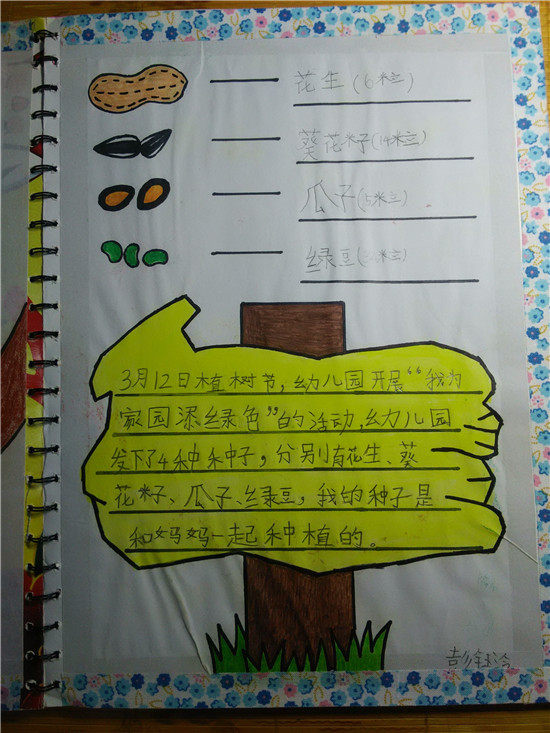 花生(6粒)
葵花籽(14粒)
瓜子(5粒)
绿豆(30粒)
3月12日植树节,幼儿园开展“我为
家园添绿色”的活动,幼儿园
发下了4种种子,分别有花生、葵
花籽、瓜子、绿豆,我的种子是
和妈妈一起种植的。